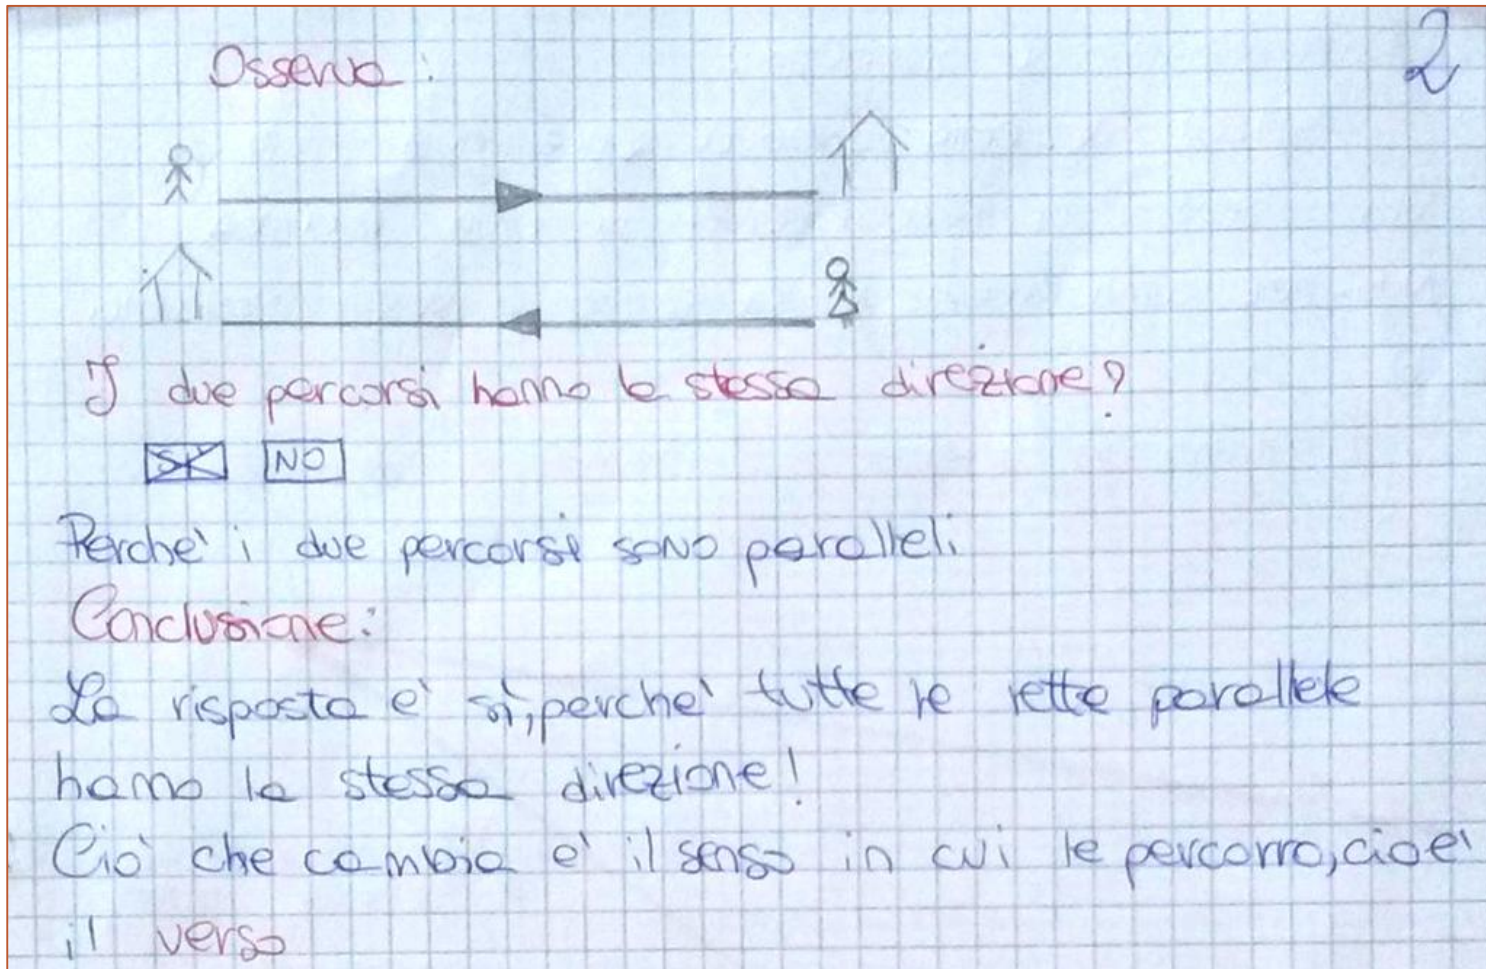 2
Osserva:
I due percorsi hanno la stessa direzione?
SI NO
Perche' i due percorsi sono paralleli
Conclusione:
La risposta e' sì, perche' tutte le rette parallele
hanno la stessa direzione!
Cio' che cambia e' il senso in cui le percorro, cioe'
il verso